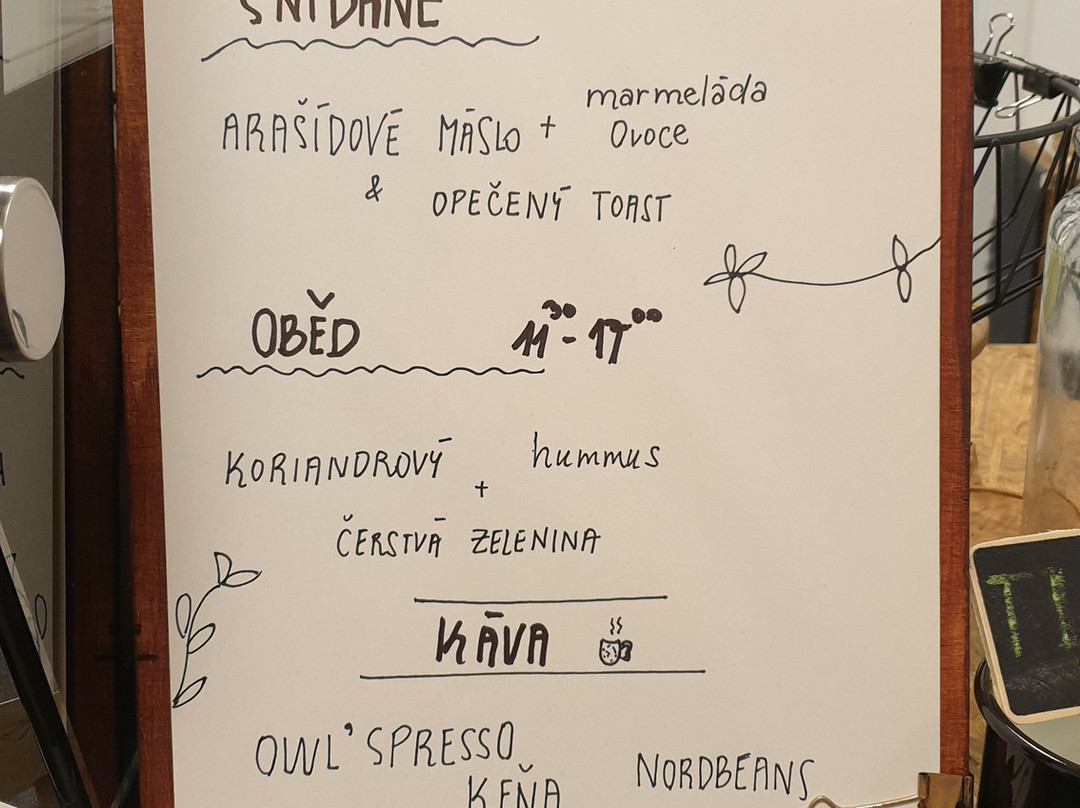 SNÍDANĚ
ARAŠÍDOVÉ MÁSLO + marmeláda
Ovoce
& OPEČENÝ TOAST
OBĚD 11³⁰ - 17⁰⁰
KORIANDROVÝ + hummus
ČERSTVÁ ZELENINA
KÁVA
OWL'SPRESSO
KEŇA
NORDBEANS